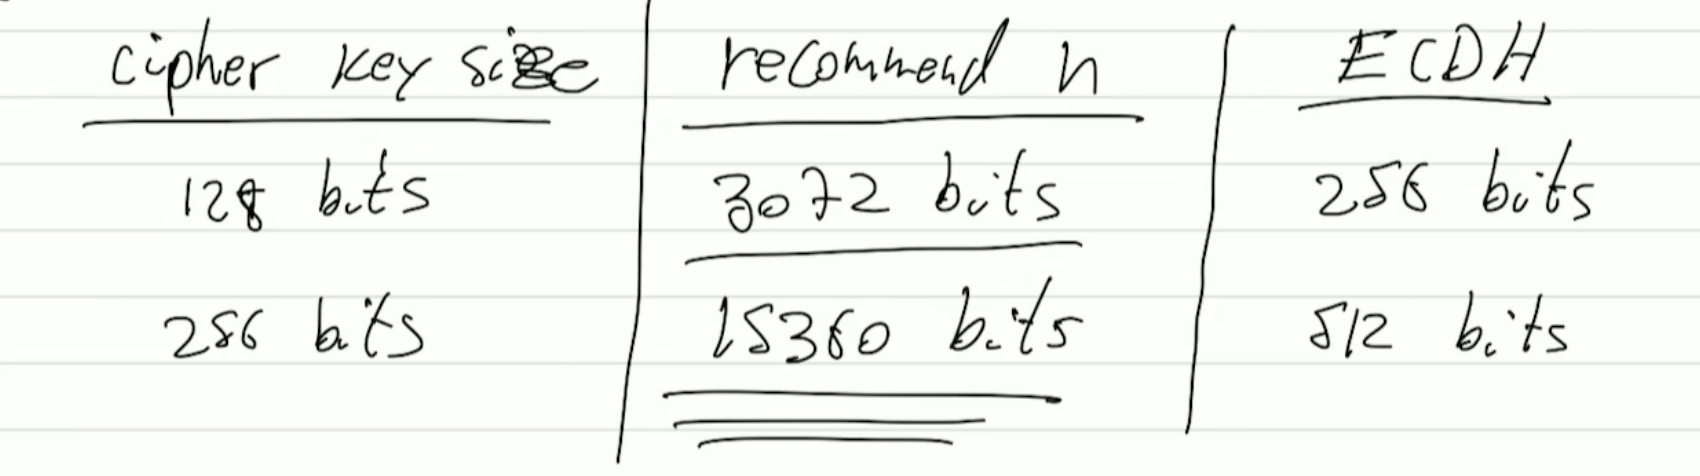 cipher key size recommend n ECDH
128 bits 3072 bits 256 bits
256 bits 15360 bits 512 bits